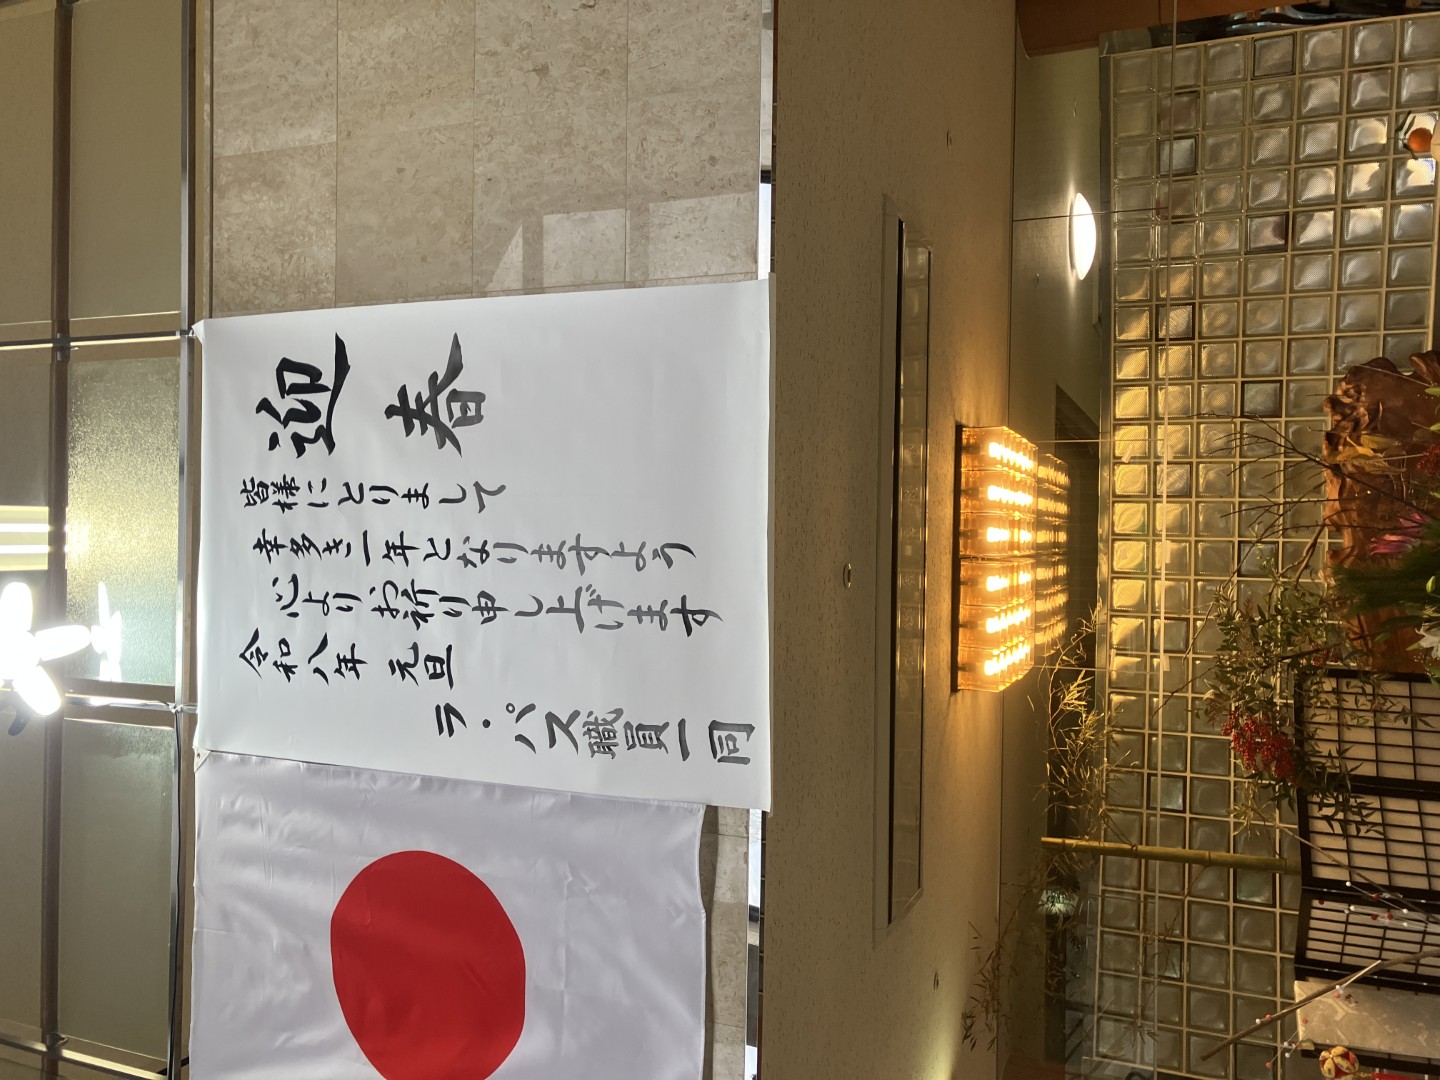 迎春
皆様にとりまして
幸多き一年となりますよう
心よりお祈り申し上げます
令和八年 元旦
ラ・パス職員一同